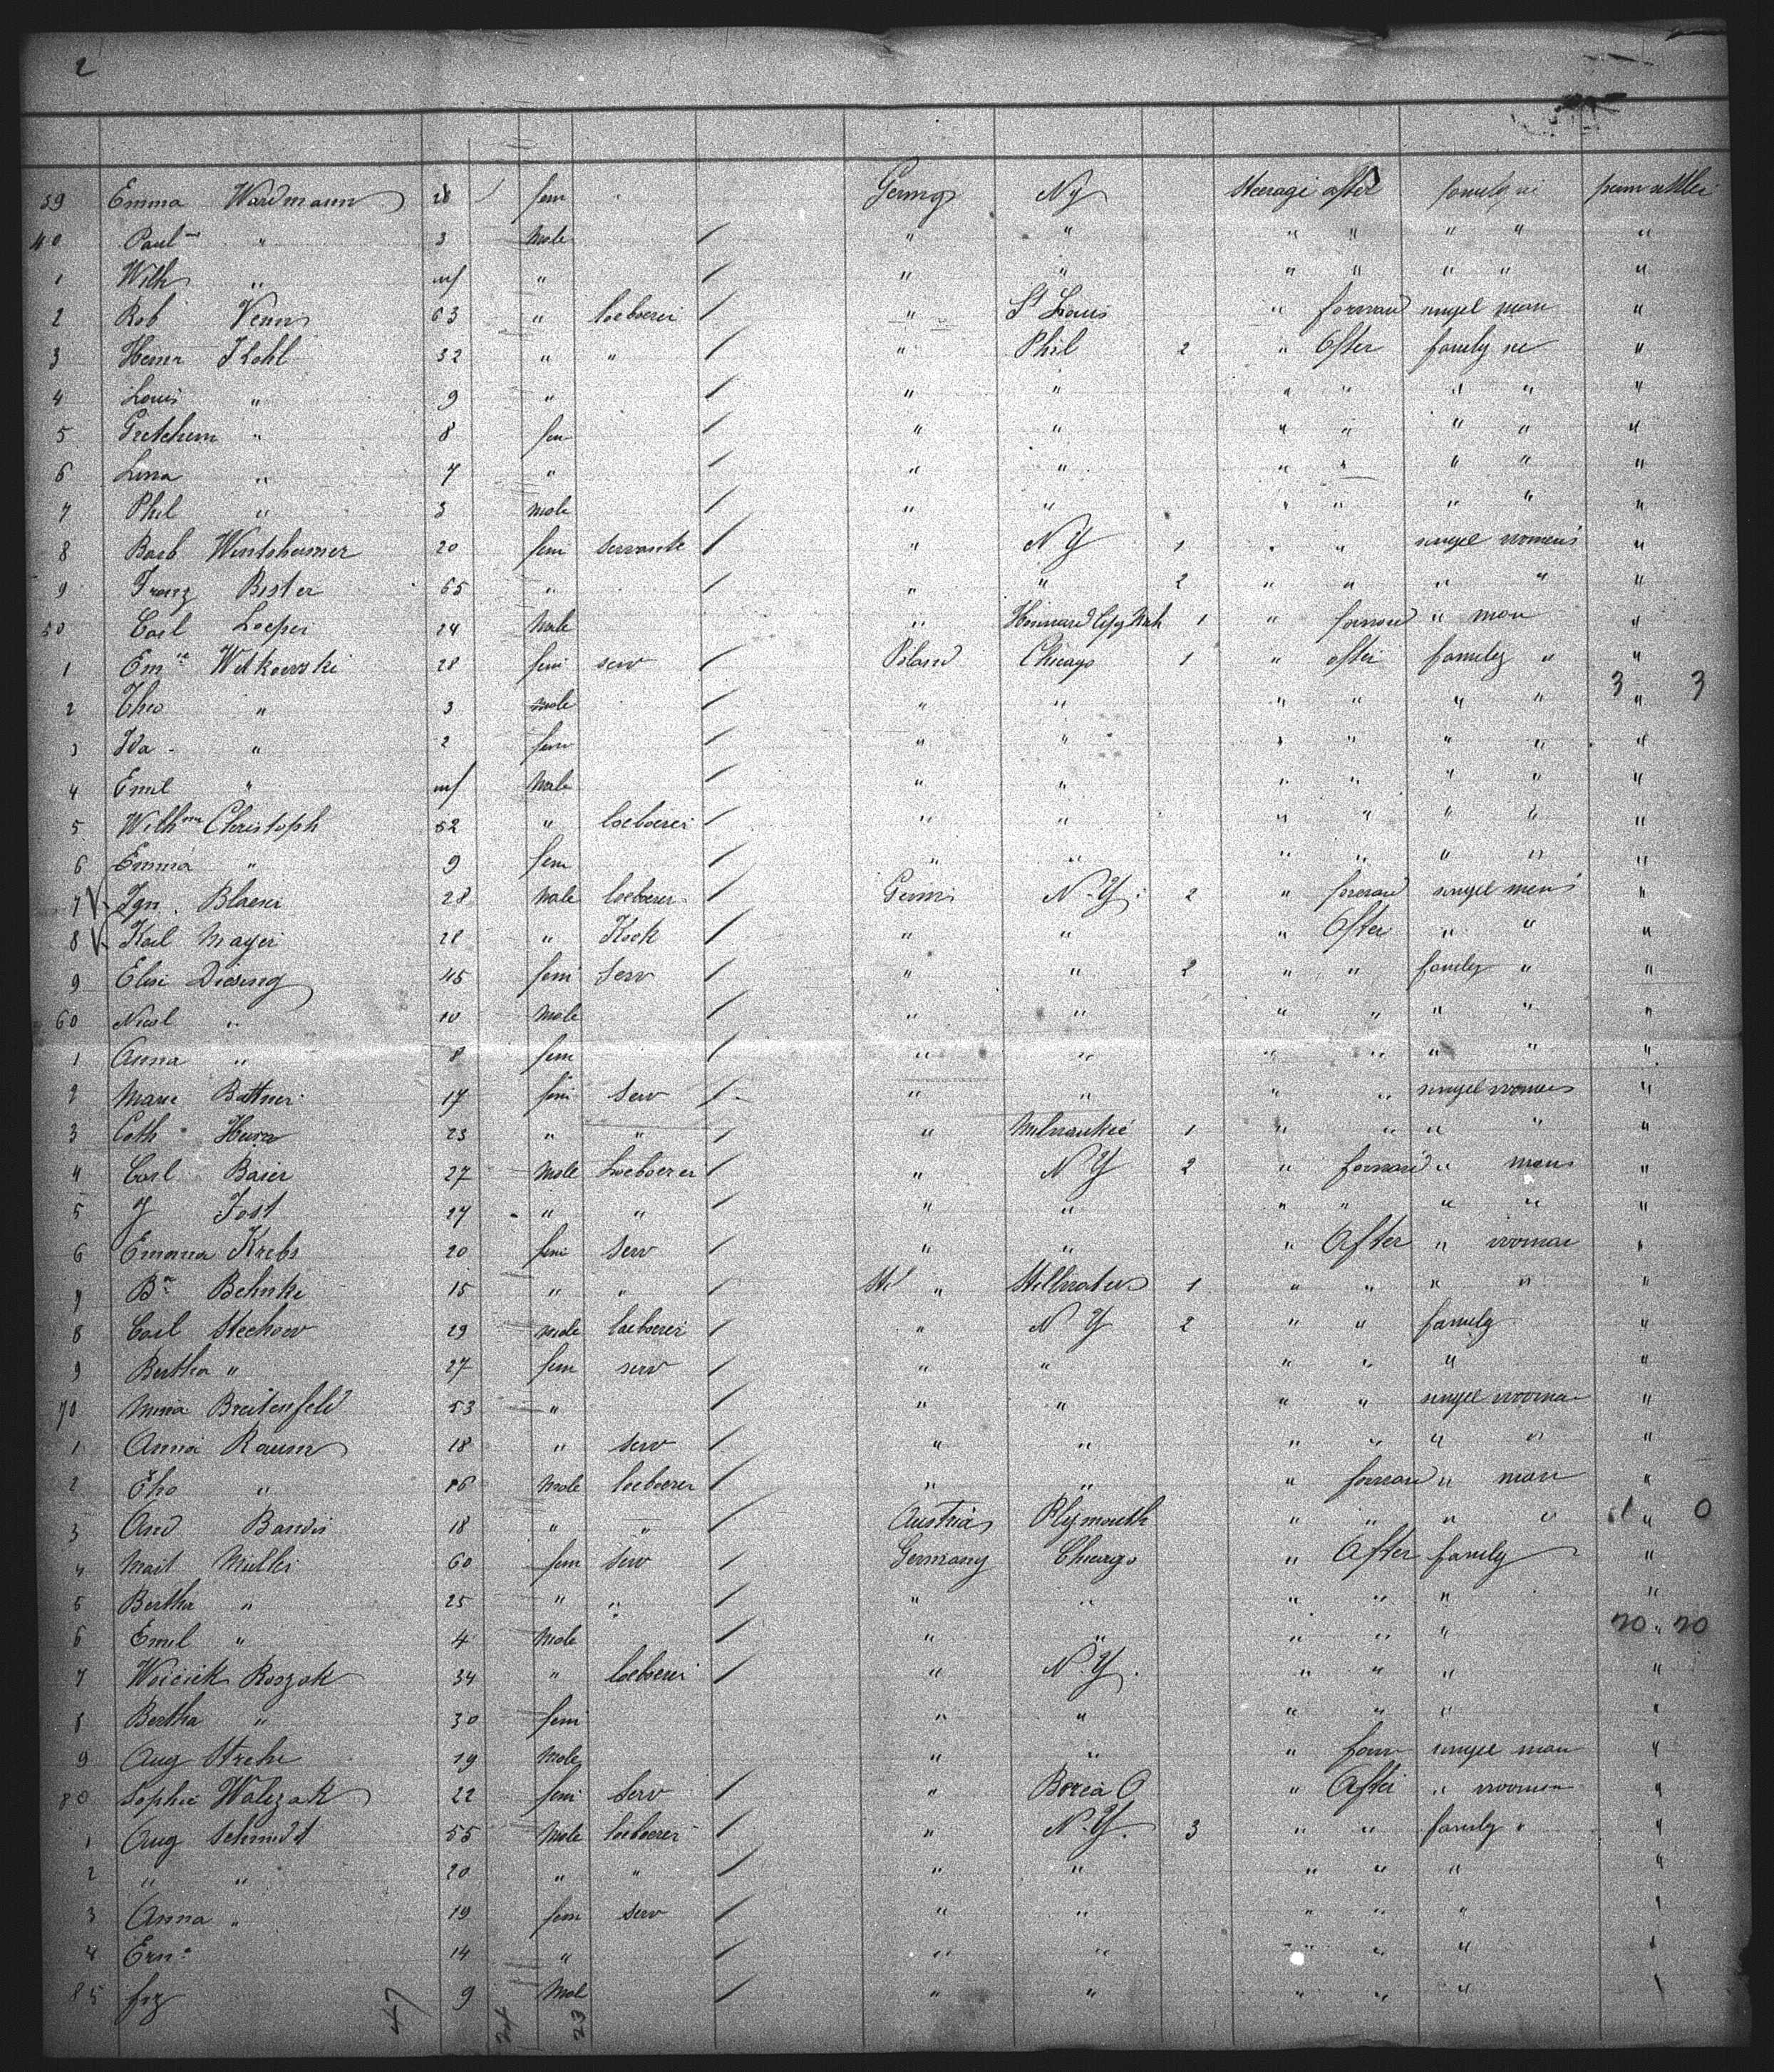 2
39 Emma Wardmann 28 / fem Germy NY Steerage after family permsettler
40 Paul " 3 Male / " " " " " " "
1 Wilh " inf " / " " " " " " "
2 Rob 63 " laeborer / " St Louis " forward singel man "
3 Kohl 32 " " / " Phil 2 " After family "
4 Louis " 9 " / " " " " " " "
5 Gretchen " 8 fem / " " " " " " "
6 Lina " 7 " / " " " " " " "
7 Phil " 3 Male / " " " " " " "
8 Barb Wintsheimer 20 fem servante / " NY 1 " " singel women's "
9 Franz Bister 65 " / " " 2 " " " " "
50 Carl 24 Male " 1 " forward " man "
1 Em Witkowski 28 fem serv / Poland Chicago 1 " after family " "
2 Theo " 3 male / " " " " " " 3 " 3
3 Ida " 2 fem / " " " " " " "
4 Emil " inf Male / " " " " " " "
5 Wilhm Christoph 52 " laeborer / " " " " " " "
6 Emma " 9 fem / " " " " " " "
7 V Ign. 28 Male laeborer / Germ N-Y. 2 " forward singel men's "
8 V Karl Mayer 28 " Kock / " " " After " " "
9 Diesing 45 fem serv / " " 2 " " family " "
60 " 10 Male / " " " " " " "
1 Anna " 8 fem / " " " " " " "
2 Marie Battner 17 fem serv / " " " " singel womens "
3 Cath 23 " " / " Milwaukie 1 " " " " "
4 Carl Baier 27 Male Laeborer / " NY 2 " forward " mens "
5 J Jost 27 " " / " " " " " " "
6 Emma Krebs 20 fem serv / " " " After " woman "
7 Behnke 15 " " / " Stillwater 1 " " " " "
8 Carl Stechow 29 male laeborer / " NY 2 " " family "
9 Bertha " 27 fem serv / " " " " " "
70 Mina Breitenfeld 53 " / " " " " singel woman "
1 Anna Raum 18 " serv / " " " " " " "
2 " 16 Male laeborer / " " " forward " man "
3 And 18 " " / Austria Plymouth " " " " 1 " 0
4 Muller 60 fem serv / Germany Chicago " After family "
5 Bertha " 25 " " / " " " " " "
6 Emil " 4 Male / " " " " " 20 " 20
7 Roszak 34 " laeborer / " N.Y. " " " "
8 Bertha " 30 fem " " " " " "
9 Aug 19 Male " " " forw singel man "
80 Sophie Walczak 22 fem serv / " Berea O " After " woman "
1 Aug Schmidt 55 Male laeborer / " N.Y. 3 " " family "
2 " " 20 " " / " " " " " "
3 Anna " 19 fem serv / " " " " "
4 Ern 14 " / " " " " "
85 frz 9 Mal / " " " " "
47 24 23